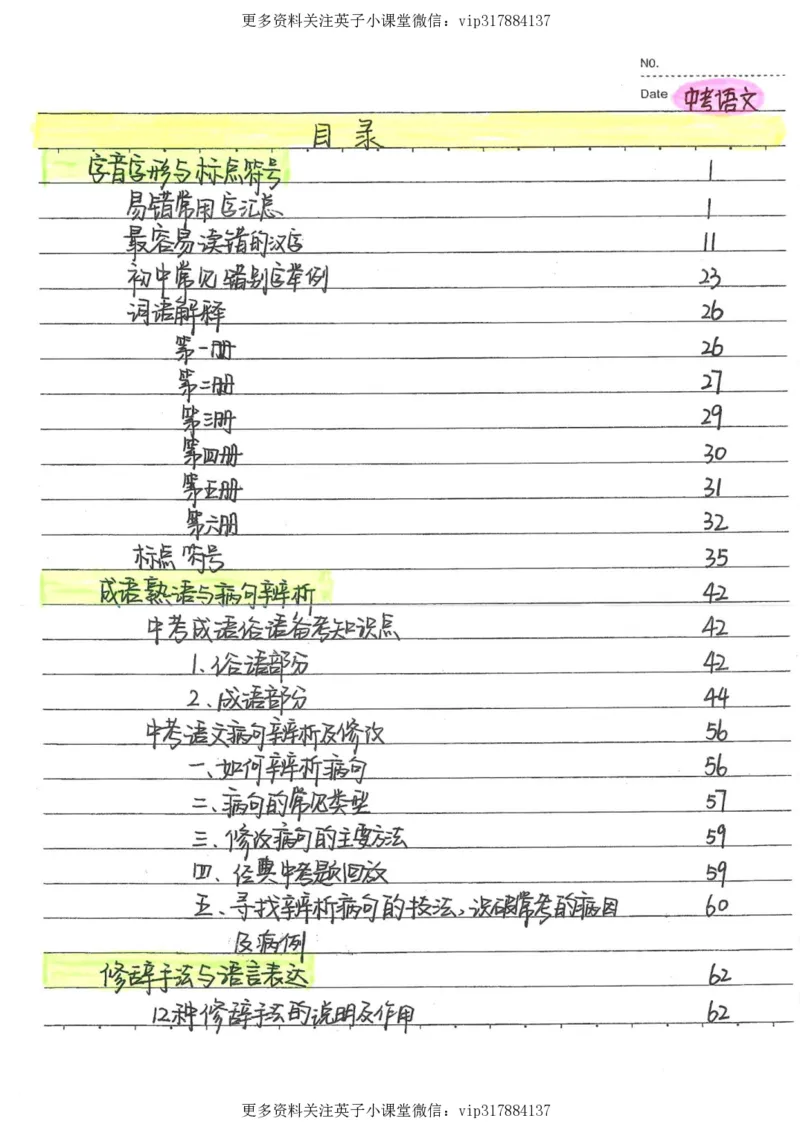 更多资料关注英子小课堂微信：vip317884137
NO.
Date 中考语文
目录
字音字形与标点符号 1
易错常用字汇总 1
最容易读错的汉字 11
初中常见错别字举例 23
词语解释 26
第一册 26
第二册 27
第三册 29
第四册 30
第五册 31
第六册 32
标点符号 35
成语熟语与病句辨析 42
中考成语俗语备考知识点 42
1.俗语部分 42
2.成语部分 44
中考语文病句辨析及修改 56
一、如何辨析病句 56
二、病句的常见类型 57
三、修改病句的主要方法 59
四、经典中考题回放 59
五、寻找辨析病句的技法，识破常考的病因 60
及病例
修辞手法与语言表达 62
12种修辞手法的说明及作用 62
更多资料关注英子小课堂微信：vip317884137